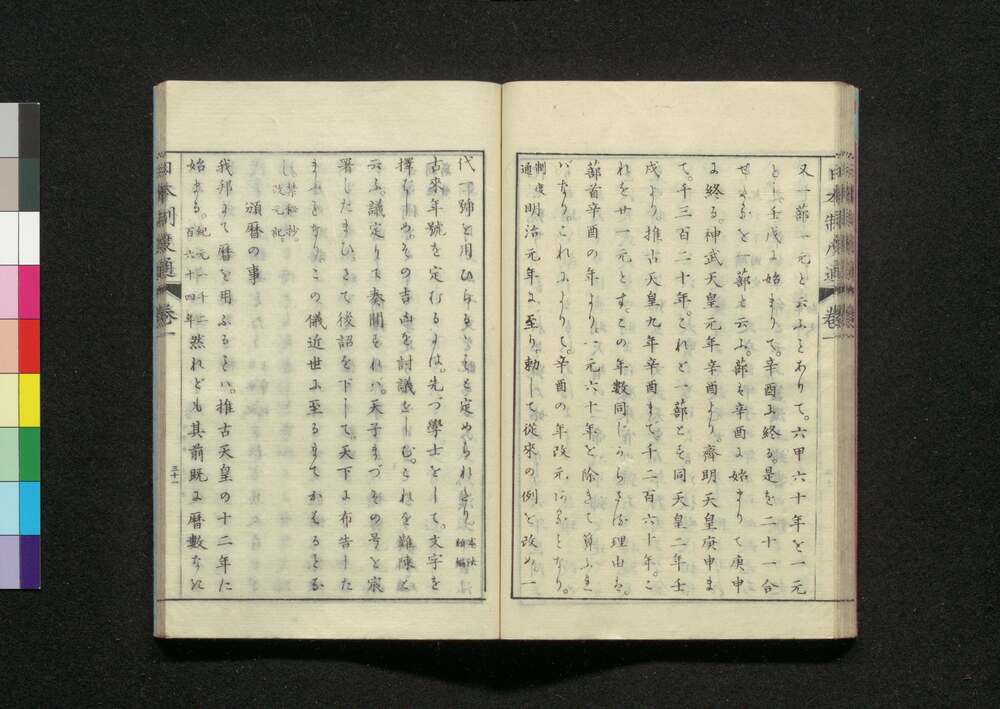 又一蔀一元と云ふことありて。六甲六十年を一元
とし壬戌に始まりて。辛酉に終る。是を二十一合
せたるを一蔀と云ふ。蔀は辛酉に始まりて庚申
に終る。神武天皇元年辛酉より齊明天皇庚申ま
て。千三百二十年。これを一蔀とす。同天皇二年壬
戌より推古天皇九年辛酉まて。千二百六十年。こ
れを廿一元とす。この年數同じからざる理由は。
蔀首辛酉の年より。一元六十年を除きて算ふれ
ばなり。これによりて。辛酉の年改元あることなり。
制度通
明治元年に至り。勅して從來の例を改め。一
日本制度通
卷一
代一號を用ひらるゝことを定められたり
本法類編
古來年號を定むるには。先づ學士をして。文字を
擇ばしめ。その吉凶を討議せしむ。これを難陳と
云ふ。議定りて奏聞すれば。天子まづその号を宸
署したまひ。さて後詔を下して。天下に布告した
まふことなり。この儀近世に至るまてかはることな
し
禁秘抄。改元記。
頒暦の事
我邦にて暦を用ふることは。推古天皇の十二年に
始まる。
紀元一千二百六十四年
然れども其前既に暦數なき
日本制度通
卷一
三十一